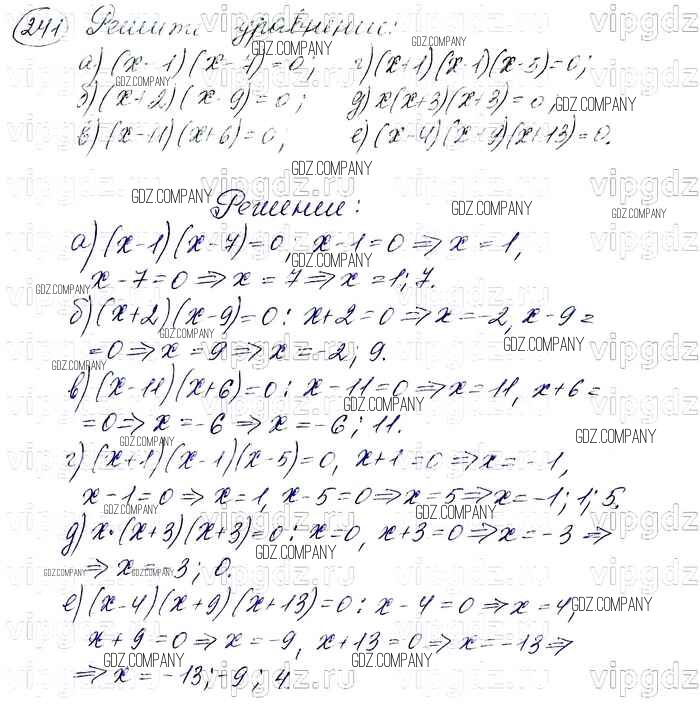 241 Решите уравнение:
а) (x-1)(x-7)=0; г) (x+1)(x-1)(x-5)=0;
б) (x+2)(x-9)=0; д) x(x+3)(x+3)=0;
в) (x-11)(x+6)=0; е) (x-4)(x+9)(x+13)=0.
Решение:
а) (x-1)(x-7)=0: x-1=0⇒x=1,
x-7=0⇒x=7⇒x=1; 7.
б) (x+2)(x-9)=0: x+2=0⇒x=-2, x-9=
=0⇒x=9⇒x=-2; 9.
в) (x-11)(x+6)=0: x-11=0⇒x=11, x+6=
=0⇒x=-6⇒x=-6; 11.
г) (x+1)(x-1)(x-5)=0, x+1=0⇒x=-1,
x-1=0⇒x=1, x-5=0⇒x=5⇒x=-1; 1; 5.
д) x·(x+3)(x+3)=0: x=0, x+3=0⇒x=-3⇒
⇒x=-3; 0.
е) (x-4)(x+9)(x+13)=0: x-4=0⇒x=4,
x+9=0⇒x=-9, x+13=0⇒x=-13⇒
⇒x=-13; -9; 4.
GDZ.COMPANY
vipgdz.ru